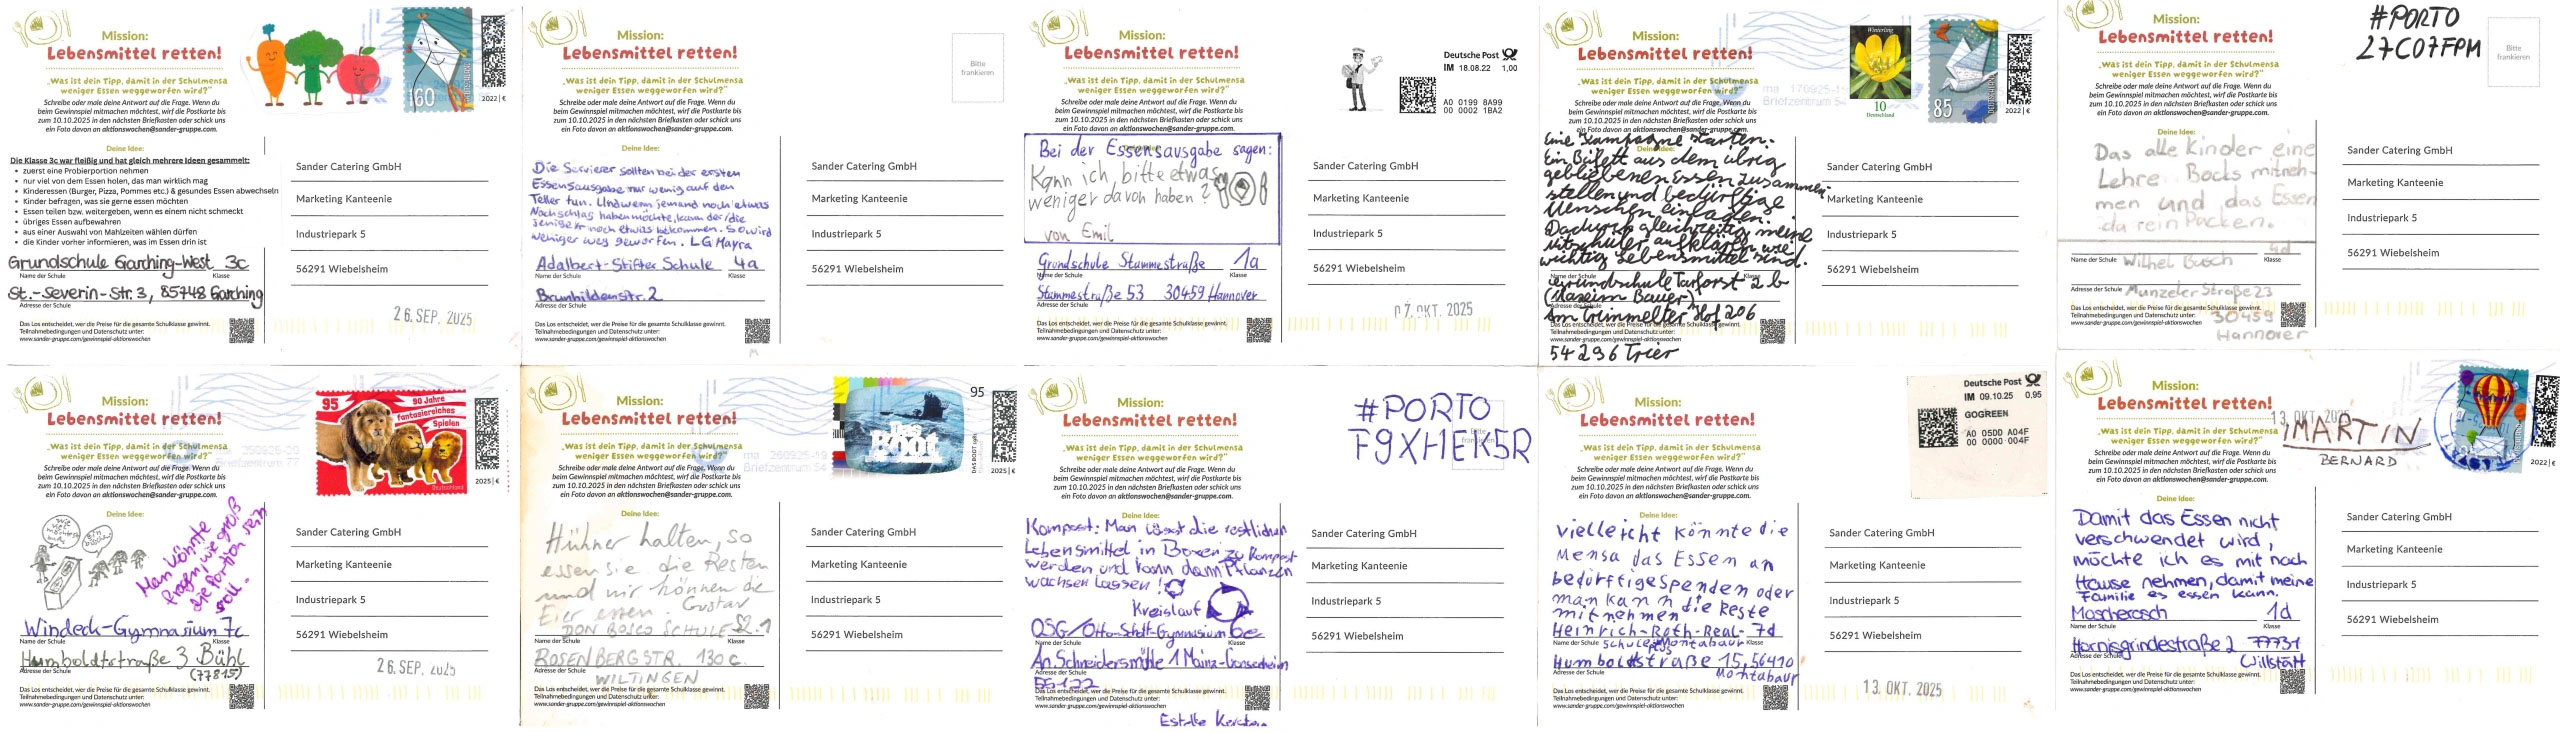 Mission:
Lebensmittel retten!
„Was ist dein Tipp, damit in der Schulmensa
weniger Essen weggeworfen wird?"
Schreibe oder male deine Antwort auf die Frage. Wenn du
beim Gewinnspiel mitmachen möchtest, wirf die Postkarte bis
zum 10.10.2025 in den nächsten Briefkasten oder schick uns
ein Foto davon an aktionswochen@sander-gruppe.com.
60
2022 | €
Deine Idee:
Die Klasse 3c war fleißig und hat gleich mehrere Ideen gesammelt:
• zuerst eine Probierportion nehmen
• nur viel von dem Essen holen, das man wirklich mag
• Kinderessen (Burger, Pizza, Pommes etc.) & gesundes Essen abwechseln
• Kinder befragen, was sie gerne essen möchten
• Essen teilen bzw. weitergeben, wenn es einem nicht schmeckt
• übriges Essen aufbewahren
• aus einer Auswahl von Mahlzeiten wählen dürfen
• die Kinder vorher informieren, was im Essen drin ist
Grundschule Garching-West 3c
Name der Schule Klasse
St.-Severin-Str. 3, 85748 Garching
Adresse der Schule
Das Los entscheidet, wer die Preise für die gesamte Schulklasse gewinnt.
Teilnahmebedingungen und Datenschutz unter:
www.sander-gruppe.com/gewinnspiel-aktionswochen
Sander Catering GmbH
Marketing Kanteenie
Industriepark 5
56291 Wiebelsheim
26. SEP. 2025
Mission:
Lebensmittel retten!
„Was ist dein Tipp, damit in der Schulmensa
weniger Essen weggeworfen wird?"
Schreibe oder male deine Antwort auf die Frage. Wenn du
beim Gewinnspiel mitmachen möchtest, wirf die Postkarte bis
zum 10.10.2025 in den nächsten Briefkasten oder schick uns
ein Foto davon an aktionswochen@sander-gruppe.com.
Bitte
frankieren
Deine Idee:
Die Servierer sollten bei der ersten
Essensausgabe nur wenig auf den
Teller tun. Und wenn jemand noch etwas
Nachschlag haben möchte, kann der/die
jenige/r noch etwas bekommen. So wird
weniger weg geworfen. LG Mayra
Adalbert-Stifter Schule 4a
Name der Schule Klasse
Brunhildenstr. 2
Adresse der Schule
Das Los entscheidet, wer die Preise für die gesamte Schulklasse gewinnt.
Teilnahmebedingungen und Datenschutz unter:
www.sander-gruppe.com/gewinnspiel-aktionswochen
Sander Catering GmbH
Marketing Kanteenie
Industriepark 5
56291 Wiebelsheim
Mission:
Lebensmittel retten!
„Was ist dein Tipp, damit in der Schulmensa
weniger Essen weggeworfen wird?"
Schreibe oder male deine Antwort auf die Frage. Wenn du
beim Gewinnspiel mitmachen möchtest, wirf die Postkarte bis
zum 10.10.2025 in den nächsten Briefkasten oder schick uns
ein Foto davon an aktionswochen@sander-gruppe.com.
Deutsche Post
IM 18.08.22 1,00
A0 0199 8A99
00 0002 1BA2
Bei der Essensausgabe sagen:
Kann ich bitte etwas
weniger davon haben?
von Emil
Grundschule Stammestraße 1a
Name der Schule Klasse
Stammestraße 53 30459 Hannover
Adresse der Schule
Das Los entscheidet, wer die Preise für die gesamte Schulklasse gewinnt.
Teilnahmebedingungen und Datenschutz unter:
www.sander-gruppe.com/gewinnspiel-aktionswochen
Sander Catering GmbH
Marketing Kanteenie
Industriepark 5
56291 Wiebelsheim
07. OKT. 2025
Mission:
Lebensmittel retten!
„Was ist dein Tipp, damit in der Schulmensa
weniger Essen weggeworfen wird?"
Schreibe oder male deine Antwort auf die Frage. Wenn du
beim Gewinnspiel mitmachen möchtest, wirf die Postkarte bis
zum 10.10.2025 in den nächsten Briefkasten oder schick uns
ein Foto davon an aktionswochen@sander-gruppe.com.
Winterling
10
Deutschland
85
2022 | €
ma 170925
Briefzentrum 54
Deine Idee:
Eine Kampagne starten.
Ein Büfett aus dem übrig
gebliebenen Essen zusammen
stellen und bedürftige
Menschen einladen.
Dadurch gleichzeitig meine
Mitschüler aufklären wie
wichtig Lebensmittel sind.
Name der Schule Klasse
Grundschule Tarforst 2b
(Maxim Bauer)
Adresse der Schule
Am Trimmelter Hof 206
Das Los entscheidet, wer die Preise für die gesamte Schulklasse gewinnt.
Teilnahmebedingungen und Datenschutz unter:
www.sander-gruppe.com/gewinnspiel-aktionswochen
54296 Trier
Sander Catering GmbH
Marketing Kanteenie
Industriepark 5
56291 Wiebelsheim
Mission:
Lebensmittel retten!
„Was ist dein Tipp, damit in der Schulmensa
weniger Essen weggeworfen wird?"
Schreibe oder male deine Antwort auf die Frage. Wenn du
beim Gewinnspiel mitmachen möchtest, wirf die Postkarte bis
zum 10.10.2025 in den nächsten Briefkasten oder schick uns
ein Foto davon an aktionswochen@sander-gruppe.com.
#PORTO
27C07FPM
Bitte
frankieren
Deine Idee:
Das alle Kinder eine
Lehre Bocks mitneh-
men und das Essen
da rein Packen.
4d
Name der Schule Wilhel Busch Klasse
Adresse der Schule Munzeler Straße 23
30459
Hannover
Das Los entscheidet, wer die Preise für die gesamte Schulklasse gewinnt.
Teilnahmebedingungen und Datenschutz unter:
www.sander-gruppe.com/gewinnspiel-aktionswochen
Sander Catering GmbH
Marketing Kanteenie
Industriepark 5
56291 Wiebelsheim
Mission:
Lebensmittel retten!
„Was ist dein Tipp, damit in der Schulmensa
weniger Essen weggeworfen wird?"
Schreibe oder male deine Antwort auf die Frage. Wenn du
beim Gewinnspiel mitmachen möchtest, wirf die Postkarte bis
zum 10.10.2025 in den nächsten Briefkasten oder schick uns
ein Foto davon an aktionswochen@sander-gruppe.com.
95
90 Jahre
fantasiereiches
Spielen
Deutschland
2025 | €
Deine Idee:
Man könnte
fragen, wie groß
die Portion sein
soll.
Windeck-Gymnasium 7c
Name der Schule Klasse
Humboldtstraße 3 Bühl
Adresse der Schule
(77815)
Das Los entscheidet, wer die Preise für die gesamte Schulklasse gewinnt.
Teilnahmebedingungen und Datenschutz unter:
www.sander-gruppe.com/gewinnspiel-aktionswochen
Sander Catering GmbH
Marketing Kanteenie
Industriepark 5
56291 Wiebelsheim
26. SEP. 2025
Mission:
Lebensmittel retten!
„Was ist dein Tipp, damit in der Schulmensa
weniger Essen weggeworfen wird?"
Schreibe oder male deine Antwort auf die Frage. Wenn du
beim Gewinnspiel mitmachen möchtest, wirf die Postkarte bis
zum 10.10.2025 in den nächsten Briefkasten oder schick uns
ein Foto davon an aktionswochen@sander-gruppe.com.
ma 260925
Briefzentrum 54
Das Boot
95
2025 | €
Deine Idee:
Hühner halten, so
essen sie die Resten
und wir können die
Eier essen. Gustav
DON BOSCO SCHULE S2.1
Name der Schule Klasse
ROSENBERGSTR. 130 c.
Adresse der Schule
WILTINGEN
Das Los entscheidet, wer die Preise für die gesamte Schulklasse gewinnt.
Teilnahmebedingungen und Datenschutz unter:
www.sander-gruppe.com/gewinnspiel-aktionswochen
Sander Catering GmbH
Marketing Kanteenie
Industriepark 5
56291 Wiebelsheim
Mission:
Lebensmittel retten!
„Was ist dein Tipp, damit in der Schulmensa
weniger Essen weggeworfen wird?"
Schreibe oder male deine Antwort auf die Frage. Wenn du
beim Gewinnspiel mitmachen möchtest, wirf die Postkarte bis
zum 10.10.2025 in den nächsten Briefkasten oder schick uns
ein Foto davon an aktionswochen@sander-gruppe.com.
#PORTO
F9XHEK5R
Deine Idee:
Kompost: Man lässt die restlichen
Lebensmittel in Boxen zu Kompost
werden und kann dann Pflanzen
wachsen lassen!
Kreislauf
OSG/Otto-Schott-Gymnasium 6e
Name der Schule Klasse
An Schneidersmühle 1 Mainz-Gonsenheim
Adresse der Schule
55122
Das Los entscheidet, wer die Preise für die gesamte Schulklasse gewinnt.
Teilnahmebedingungen und Datenschutz unter:
www.sander-gruppe.com/gewinnspiel-aktionswochen
Sander Catering GmbH
Marketing Kanteenie
Industriepark 5
56291 Wiebelsheim
Mission:
Lebensmittel retten!
„Was ist dein Tipp, damit in der Schulmensa
weniger Essen weggeworfen wird?"
Schreibe oder male deine Antwort auf die Frage. Wenn du
beim Gewinnspiel mitmachen möchtest, wirf die Postkarte bis
zum 10.10.2025 in den nächsten Briefkasten oder schick uns
ein Foto davon an aktionswochen@sander-gruppe.com.
Deutsche Post
IM 09.10.25 0,95
GOGREEN
A0 05DD A04F
00 0000 004F
Deine Idee:
Vielleicht könnte die
Mensa das Essen an
bedürftige spenden oder
man kann die Reste
mitnehmen
Heinrich-Roth-Real- 7d
Name der Schule schule plus Montabaur Klasse
Humboldtstraße 15, 56410
Adresse der Schule Montabaur
Das Los entscheidet, wer die Preise für die gesamte Schulklasse gewinnt.
Teilnahmebedingungen und Datenschutz unter:
www.sander-gruppe.com/gewinnspiel-aktionswochen
Sander Catering GmbH
Marketing Kanteenie
Industriepark 5
56291 Wiebelsheim
13. OKT. 2025
Mission:
Lebensmittel retten!
„Was ist dein Tipp, damit in der Schulmensa
weniger Essen weggeworfen wird?"
Schreibe oder male deine Antwort auf die Frage. Wenn du
beim Gewinnspiel mitmachen möchtest, wirf die Postkarte bis
zum 10.10.2025 in den nächsten Briefkasten oder schick uns
ein Foto davon an aktionswochen@sander-gruppe.com.
13. OKT. 2025
MARTIN
BERNARD
2022 | €
Deine Idee:
Damit das Essen nicht
verschwendet wird,
möchte ich es mit nach
Hause nehmen, damit meine
Familie es essen kann.
Moscherosch 1d
Name der Schule Klasse
Hornisgrindestraße 2 77731
Adresse der Schule
Willstätt
Das Los entscheidet, wer die Preise für die gesamte Schulklasse gewinnt.
Teilnahmebedingungen und Datenschutz unter:
www.sander-gruppe.com/gewinnspiel-aktionswochen
Sander Catering GmbH
Marketing Kanteenie
Industriepark 5
56291 Wiebelsheim